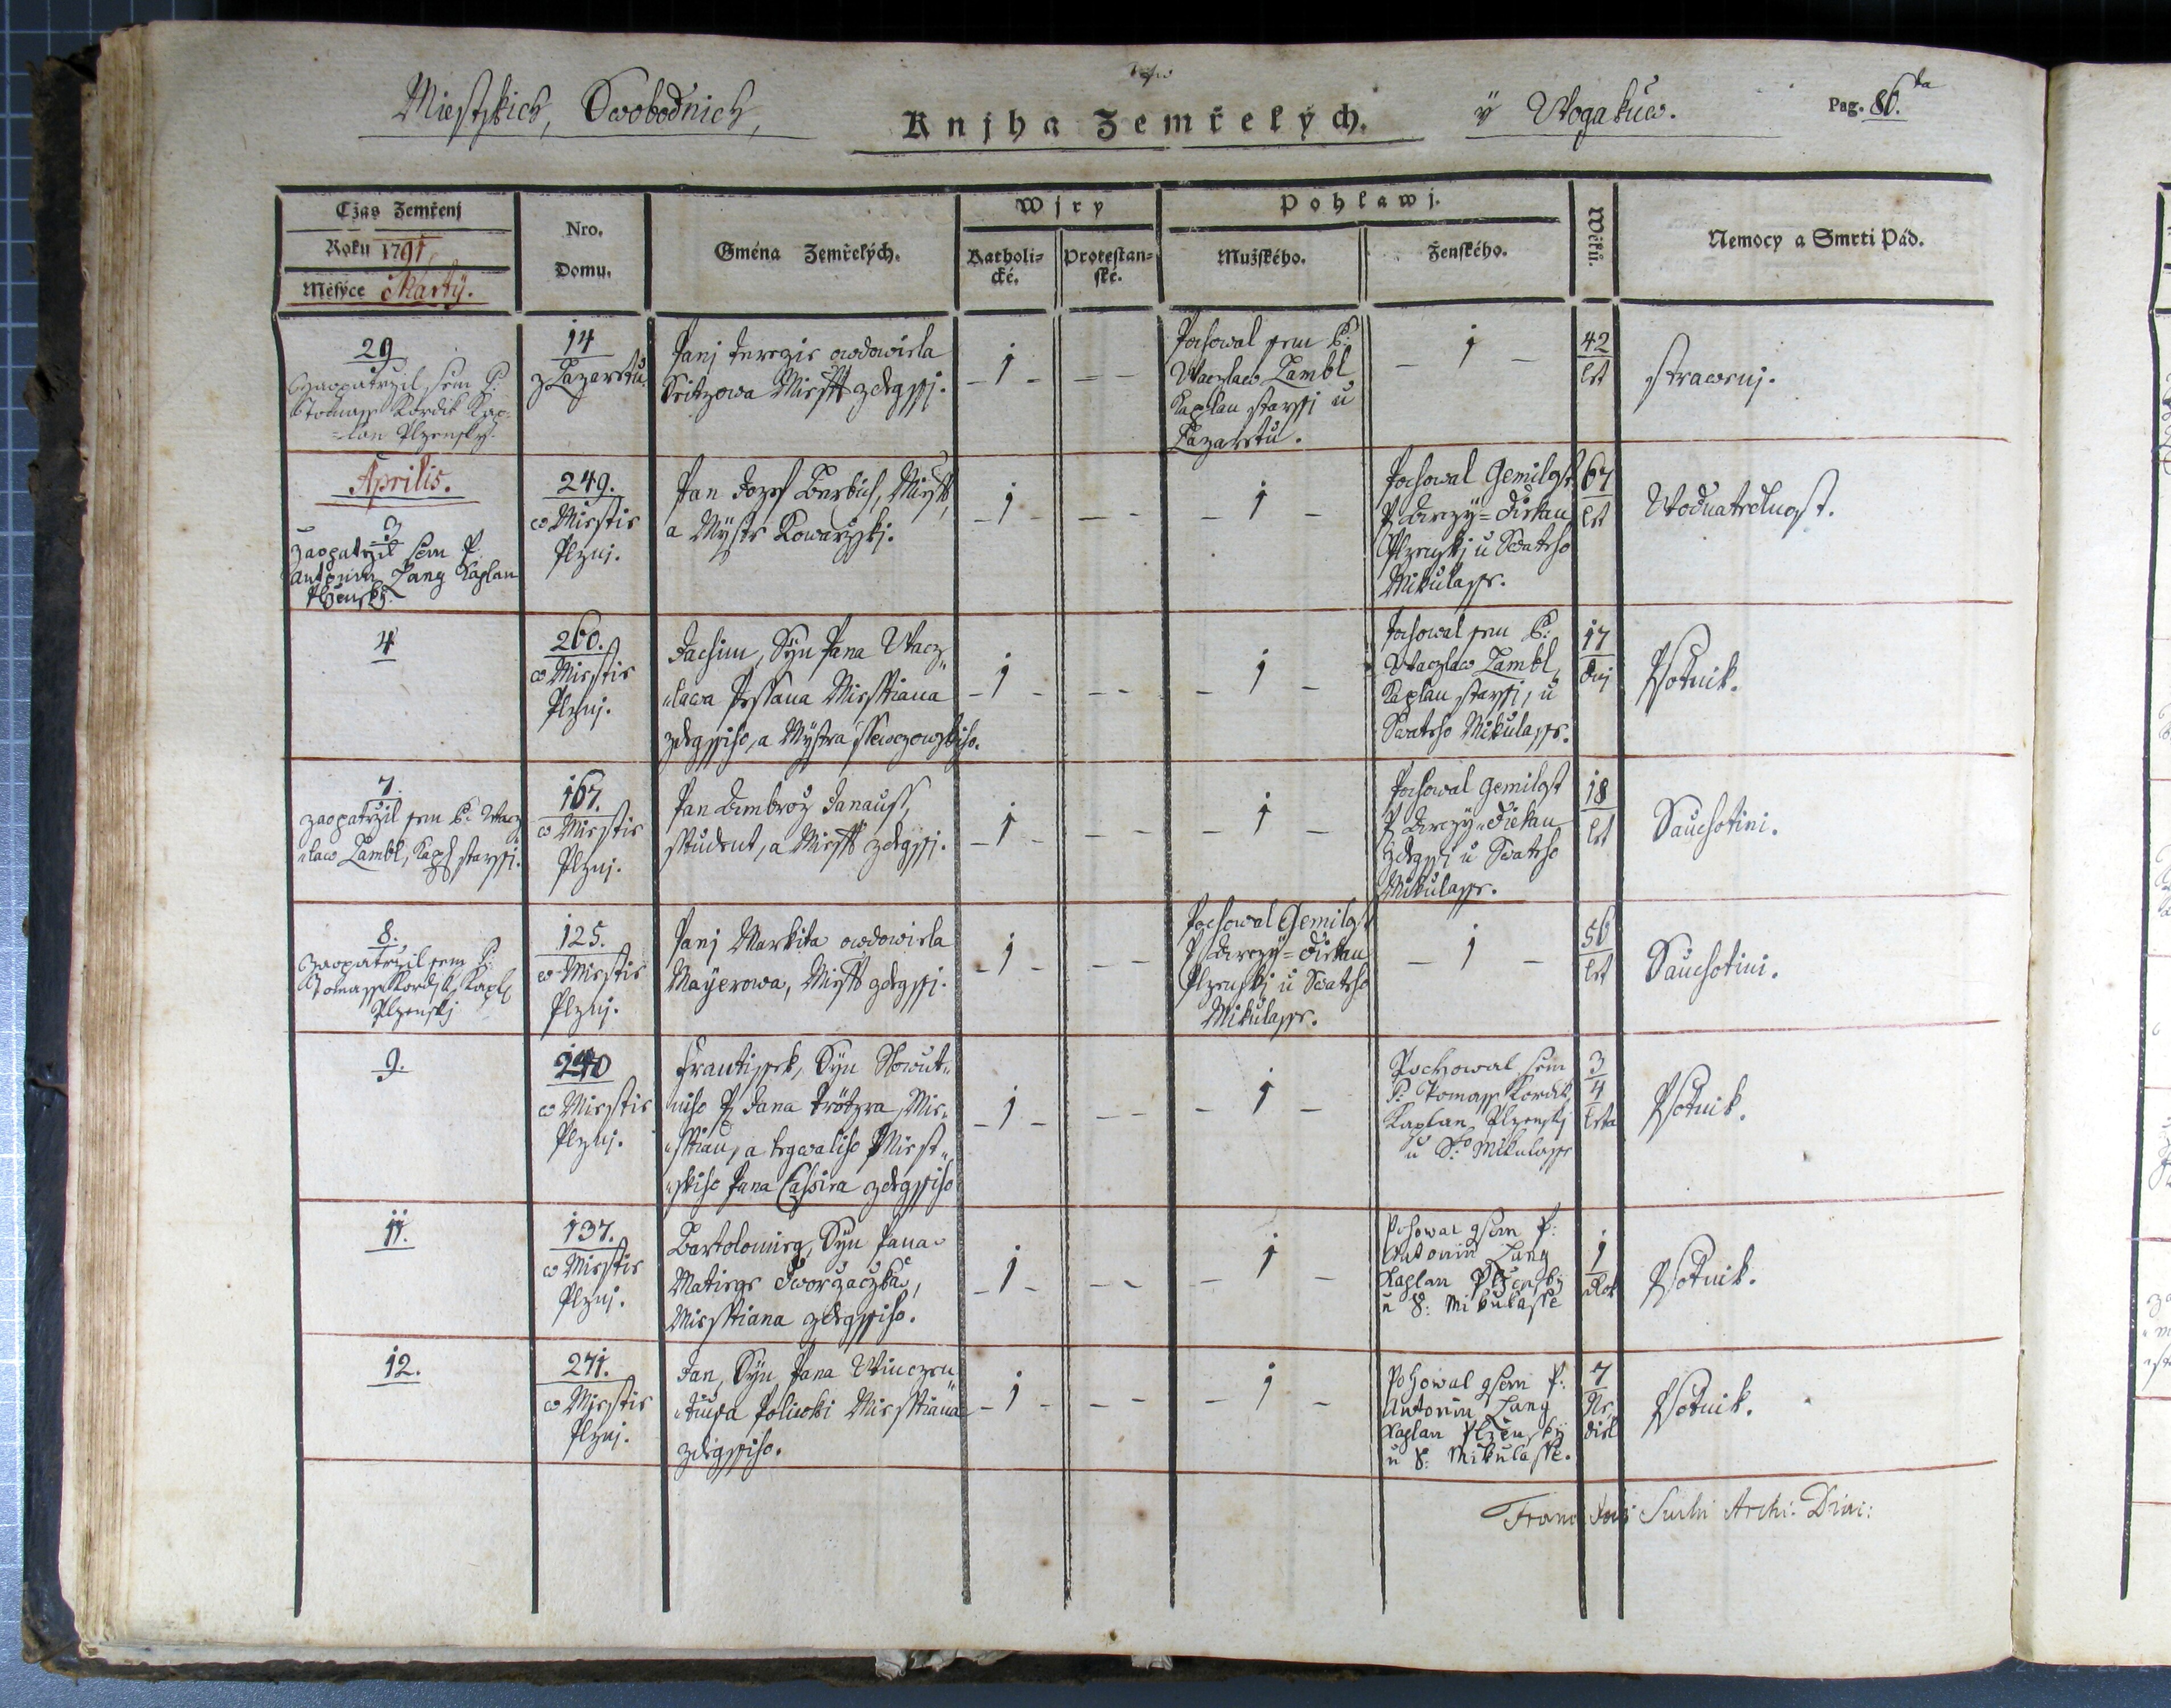 Miestskich, Swobodnich,
Knjha Zemřelých.
ÿ Wogakuw.
Pag. 86.
Cžas Zemřenj
Roku 1791,
Měsýce Marty.
Nro.
Domu.
Gména Zemřelých.
Wjry
Katholi-
cké.
Protestan-
ské.
Pohlawj.
Mužského.
Ženského.
Wěků.
Nemocy a Smrti Pád.
29
zaopatrzil sem P:
Tomass Kordik Kap-
=lan Plzensky.
14
z Lazaretu.
Panj Terezie owdowiela
Mieszt zdegssj.
- 1 -
- - -
Pochowal sem P:
Waczlaw Lambl
Kaplan starssj u
Lazaretu.
- 1 -
42
let
strawenj.
Aprilis.
3
zaopatrzil sem P.
Antonin Lang Kaplan
Plzensky.
249.
w Miestie
Plznj.
Pan Jozef Berbich, Mieszt,
a Mystr Kowarzskj.
- 1 -
- - -
- 1 -
Pochowal Gemilost
P Arczÿ=Diekan
Plzenskj u Swateho
Mikulasse.
67
let
Wodnatedlnost.
4
260.
w Miestie
Plznj.
Jachim, Syn Pana Wacz
"lawa Pessana Miesstiana
zdegssiho, a Mystra ssewczowskiho.
- 1 -
- - -
- 1 -
Pochowal sem P:
Waczlaw Lambl,
Kaplan starssj, u
Swateho Mikulasse.
17
dnj
Psotnik.
7.
zaopatrzil sem P: Wacz
"law Lambl, Kapl starssj.
167.
w Miestie
Plznj.
Pan Ambroz Janauss,
student, a Mieszt zdegssj.
- 1 -
- - -
- 1 -
Pochowal Gemilost
P Arczy=Diekan
zdegssj u Swateho
Mikulasse.
18
let
Sauchotini.
8.
zaopatrzil sem P:
Tomass Kordik Kapl
Plzenskj
125.
w Miestie
Plznj.
Panj Markita owdowiela
Mayerowa, Mieszt zdegssj.
- 1 -
- - -
Pochowal Gemilost
P Arczÿ=Diekan
Plzenskj u Swateho
Mikulasse.
- 1 -
56
let
Sauchotini.
9.
240
w Miestie
Plznj.
Frantissek, Syn
niho P Jana Mie-
"sstian, a Miest"
"skiho Pana Cassira zdegssiho
- 1 -
- - -
- 1 -
Pochowal sem
P: Tomass Kordik,
Kaplan Plzenskj
u S: Mikulasse
3
4
leta
Psotnik.
11.
137.
w Miestie
Plznj.
Bartolomieg, Syn Pana
Matiege Dworzaczka,
Miesstiana zdegssiho.
- 1 -
- - -
- 1 -
Pohowal gsem P:
Antonin Lang
Kaplan Plzensky
u S: Mikulasse
1
Rok
Psotnik.
12.
271.
w Miestie
Plznj.
Jan, Syn Pana Winczen
Poliwki Miesstiana
zdegssiho.
- 1 -
- - -
- 1 -
Pohowal gsem P:
Antonin Lang
Kaplan Plzensky
u S: Mikulasse.
7
Ne
diel
Psotnik.
Archi: Diac: